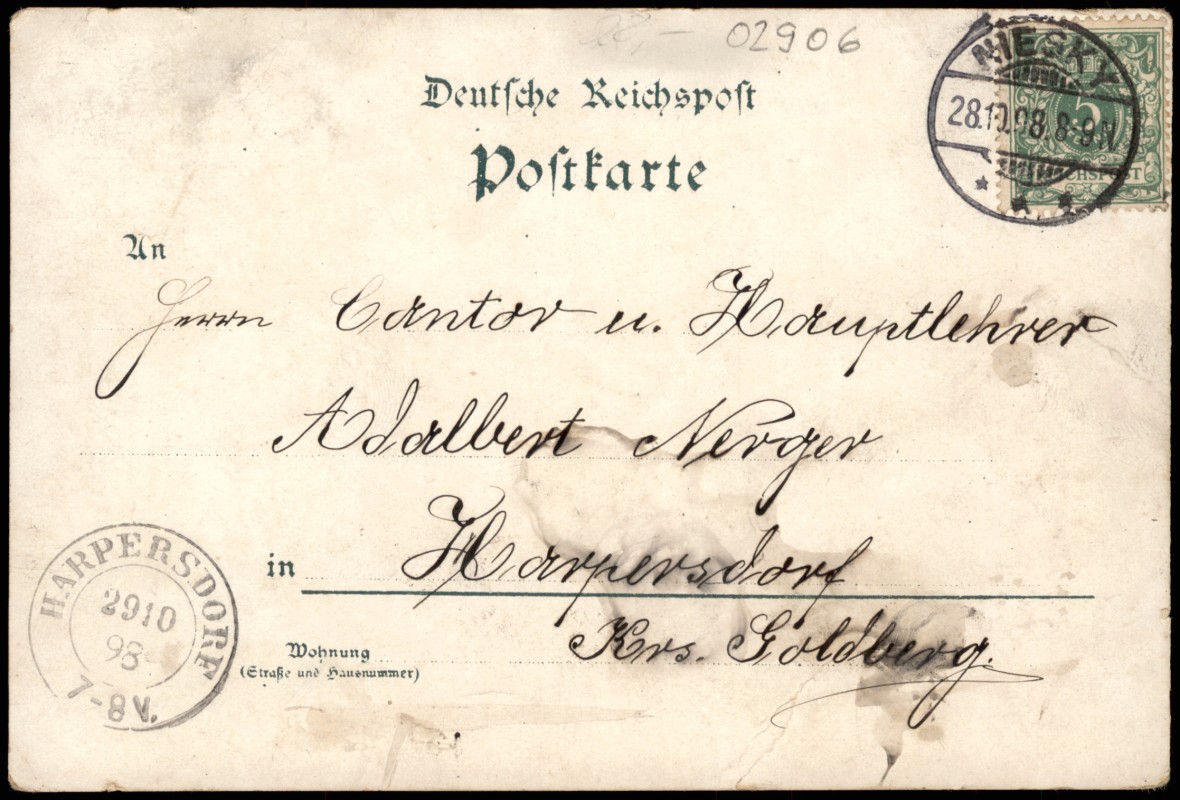 02906
Deutsche Reichspost
Postkarte
NIESKY
28.10.98. 8-9N
5
REICHSPOST
An
Herrn Cantor u. Hauptlehrer
Adalbert Nerger
in Harpersdorf
Krs. Goldberg.
Wohnung
(Straße und Hausnummer)
HARPERSDORF
2910
98
7-8 V.